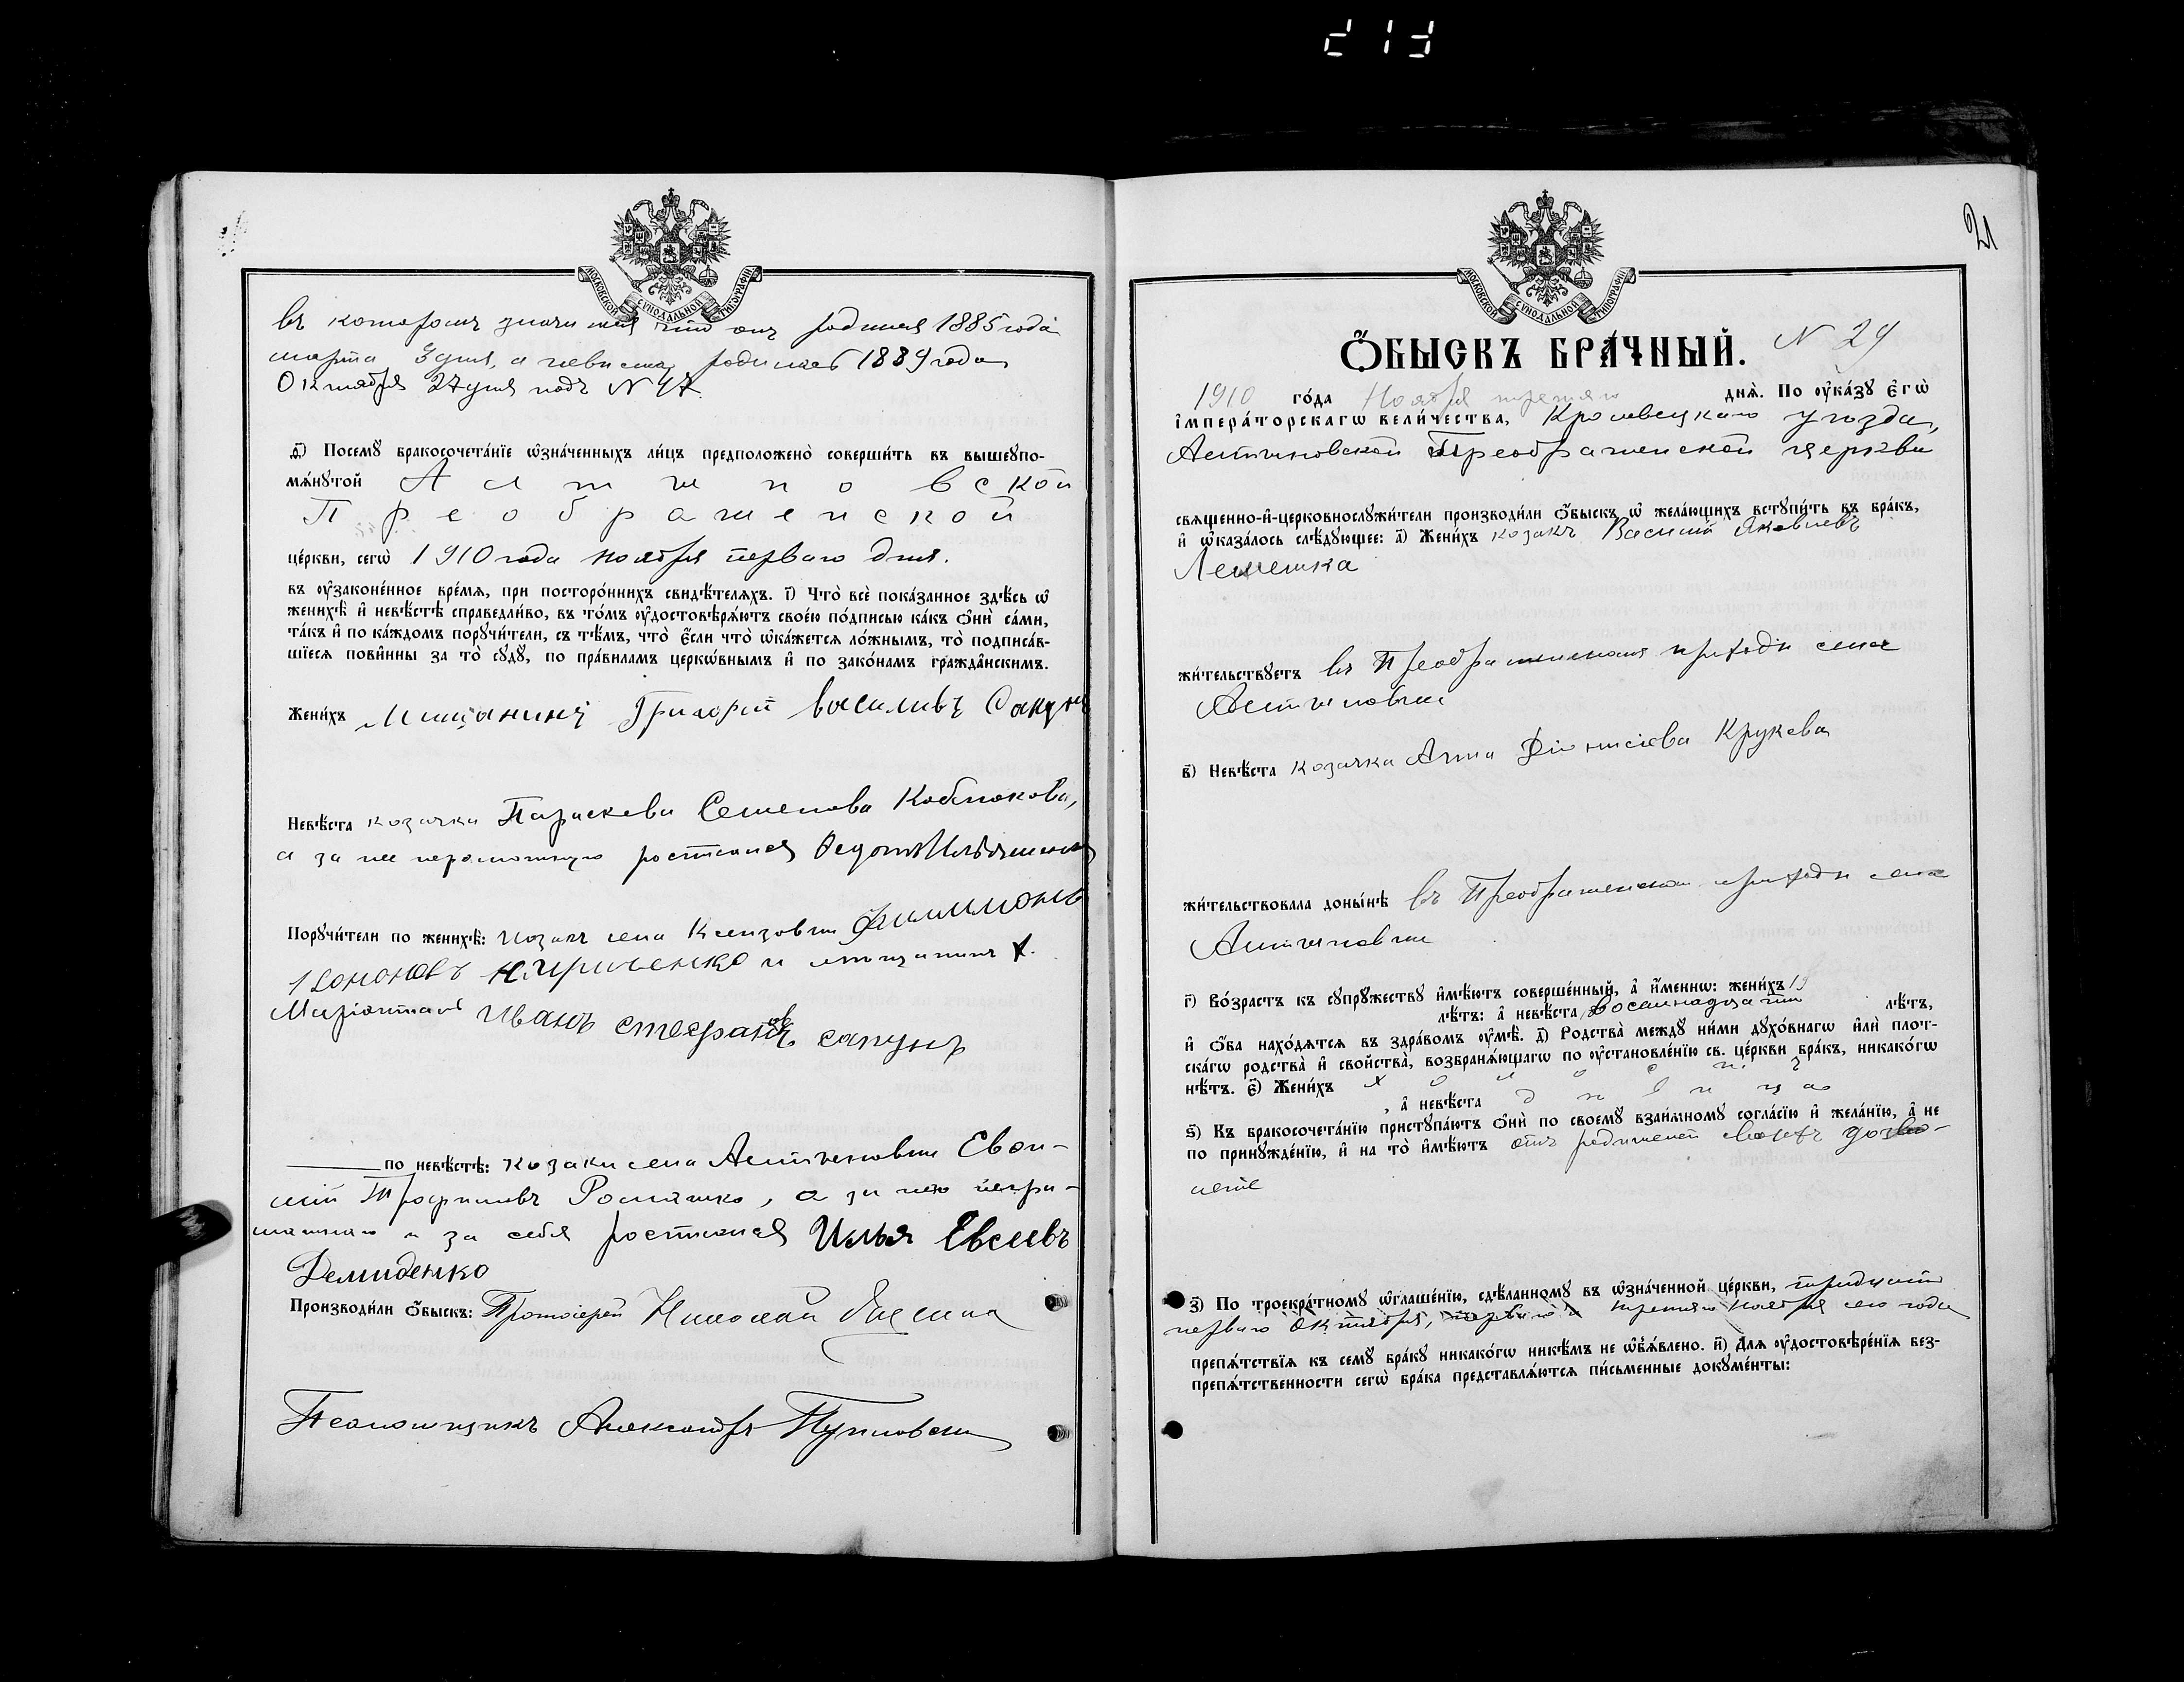 213
МОСКОВСКОЙ СѴНОДАЛЬНОЙ ТИПОГРАФІИ
въ которомъ значится что онъ родился 1885 года
марта 3 дня, а невѣста родилась 1889 года
Октября 27 дня подъ N 47.
д҃) Посемꙋ бракосочета́нїе ѡ҆зна́ченныхъ ли́цъ предположено̀ соверши́ть въ вышеꙋпо-
мѧ́нꙋтой А л т ы н о в с кой
П р е о б р а ж е н с к о й
це́ркви, сегѡ̀ 1910 года ноября перваго дня.
въ ᲂу҆законе́нное вре́мѧ, при посторо́ннихъ свидѣ́телѧхъ. і҃) Что̀ всѐ пока́занное здѣ́сь ѡ҆
женихѣ̀ и҆ невѣ́стѣ справедли́во, въ то́мъ ᲂу҆достовѣрѧ́ютъ свое́ю по́дписью ка́къ ѻ҆нѝ са́ми,
та́къ и҆ по ка́ждомъ порꙋчи́тели, съ тѣ́мъ, что̀ є҆́сли что̀ ѡ҆ка́жетсѧ ло́жнымъ, то̀ подписа́в-
шїесѧ пови́нны за то̀ сꙋдꙋ̀, по пра́виламъ церкѡ́внымъ и҆ по зако́намъ гражда̑нскимъ.
Жени́хъ Мищанинъ Григорій Василивъ Сапунъ
Невѣ́ста козачка Параскева Семенова
а за нее неграмотную росписался Федот
Порꙋчи́тели по женихѣ̀: козакъ села
Кононовъ Кириченко и мѣщанинъ
Иванъ Стефановъ Сапунъ
по невѣ́стѣ: козаки села Алтыновки Евфи-
мій Трофимовъ Ромашко, а за него негра-
мотнаго и за себя росписался Илья Евсеевъ
Демиденко
Производи́ли ѻ҆́быскъ: Протоіерей Николай
Псаломщикъ Александръ
21
МОСКОВСКОЙ СѴНОДАЛЬНОЙ ТИПОГРАФІИ
Ѻ҆́БЫСКЪ БРА́ЧНЫЙ. N 29
1910 го́да Ноября третьяго днѧ̀. По ᲂу҆ка́зꙋ є҆гѡ̀
і҆мпера́торскагѡ вели́чества, Кролевецкаго уѣзда,
Алтыновской Преображенской церкви
свѧще́нно-и҆-церковнослꙋжи́тели производи́ли ѻ҆́быскъ ѡ҆ жела́ющихъ встꙋпи́ть въ бра́къ,
и҆ ѡ҆каза́лось слѣ́дꙋющее: а҃) Жени́хъ козакъ Василій Яковлевъ
Лемешка
жи́тельствꙋетъ въ Преображенскомъ приходѣ села
Алтыновки
в҃) Невѣ́ста козачка Анна Діонисіева Крукова
жи́тельствовала доны́нѣ въ Преображенскомъ приходѣ села
Алтыновки
г҃) Во́зрастъ къ сꙋпрꙋ́жествꙋ и҆мѣ́ютъ соверше́нный, а҆ и҆́меннѡ: жени́хъ 19
лѣ́тъ: а҆ невѣ́ста восемнадцати лѣ́тъ,
и҆ ѻ҆́ба нахо́дѧтсѧ въ здра́вомъ ᲂу҆мѣ̀. д҃) Родства̀ междꙋ ни́ми дꙋхо́внагѡ и҆лѝ плот-
ска́гѡ родства̀ и҆ свойства̀, возбранѧ́ющагѡ по ᲂу҆становле́нїю св. це́ркви бра́къ, никако́гѡ
нѣ́тъ. є҃) Жени́хъ х о л о с т ъ
, а҆ невѣ́ста д ѣ в и ц а
ѕ҃) Къ бракосочета́нїю пристꙋпа́ютъ ѻ҆нѝ по своемꙋ̀ взаи́мномꙋ согла́сїю и҆ жела́нїю, а҆ не
по принꙋжде́нїю, и҆ на то̀ и҆мѣ́ютъ отъ родителей своихъ дозво-
леніе
з҃) По троекра́тномꙋ ѡ҆глаше́нїю, сдѣ́ланномꙋ въ ѡ҆зна́ченной це́ркви, тридцать
перваго Октября, перваго и третьяго Ноября сего года
препѧ́тствїѧ къ семꙋ̀ бра́кꙋ никако́гѡ никѣ́мъ не ѡ҆б̾ѧ́влено. и҃) Длѧ ᲂу҆достовѣре́нїѧ без-
препѧ́тственности сегѡ̀ бра́ка представлѧ́ютсѧ пи́сьменные докꙋме́нты: